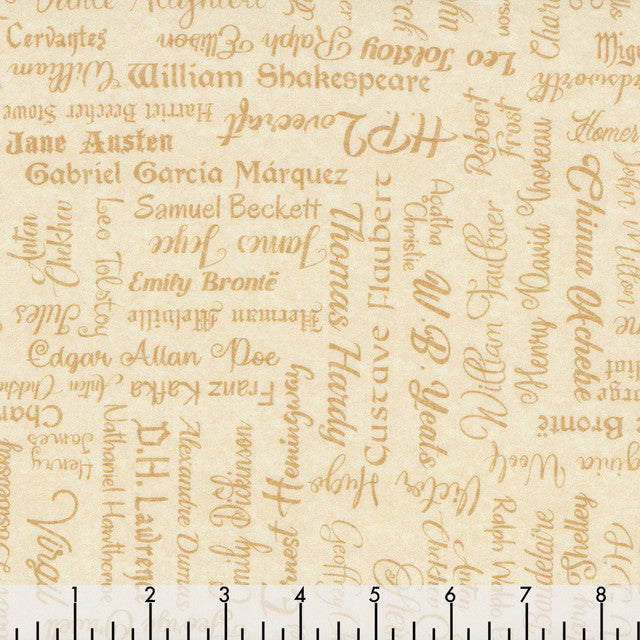 Cervantes
Ralph Ellison
Leo Tolstoy
William
William Shakespeare
Harriet Beecher Stowe
H.P. Lovecraft
Robert Frost
Jane Austen
Gabriel García Márquez
Samuel Beckett
James Joyce
Emily Brontë
Herman Melville
Edgar Allan Poe
Franz Kafka
Anton Chekhov
Leo Tolstoy
Jules
Thomas Hardy
Gustave Flaubert
Agatha Christie
W.B. Yeats
William Faulkner
Henry David Thoreau
Chinua Achebe
Homer
Brontë
Virginia Woolf
Victor Hugo
Ernest Hemingway
Emily Dickinson
Alexandre Dumas
D.H. Lawrence
Nathaniel Hawthorne
Henry James
Virgil
Geoffrey
Ralph Waldo
Shelley
1 2 3 4 5 6 7 8